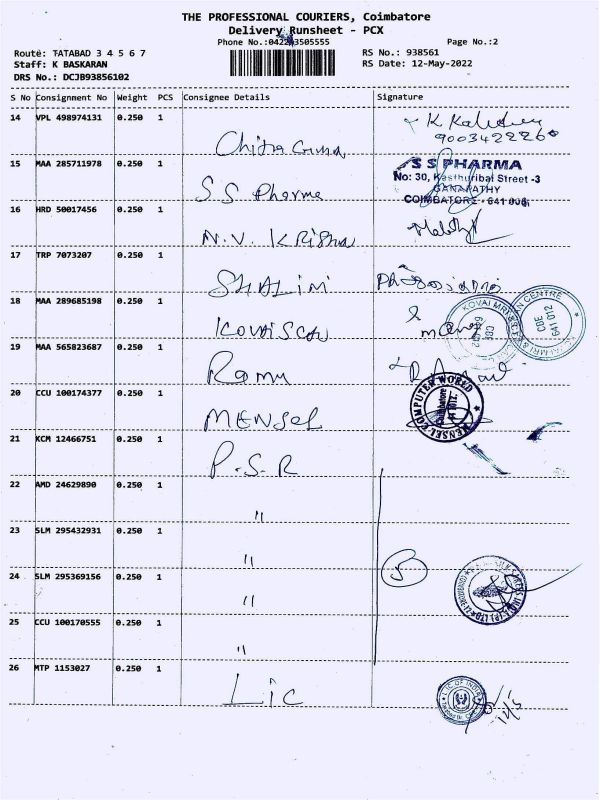 THE PROFESSIONAL COURIERS, Coimbatore
Delivery Runsheet - PCX
Phone No.:0422 3505555 Page No.:2
Route: TATABAD 3 4 5 6 7 RS No.: 938561
Staff: K BASKARAN RS Date: 12-May-2022
DRS No.: DCJB93856102
S No Consignment No Weight PCS Consignee Details Signature
14 VPL 498974131 0.250 1
Chitra
15 MAA 285711978 0.250 1 S S PHARMA
No: 30, Kasthuribai Street -3
GANAPATHY
COIMBATORE - 641 006
S S Pharma
16 HRD 50017456 0.250 1
N.V. Krishna
17 TRP 7073207 0.250 1
SHALINI
18 MAA 289685198 0.250 1
KOVAI SCAN
19 MAA 565823687 0.250 1
Ramu
20 CCU 100174377 0.250 1 MENSEL COMPUTER WORLD
MENSEL
21 KCM 12466751 0.250 1
P.S.R
22 AMD 24629890 0.250 1
"
23 SLM 295432931 0.250 1
"
24 SLM 295369156 0.250 1 5
"
25 CCU 100170555 0.250 1
"
26 MTP 1153027 0.250 1 LIC OF INDIA
LIC